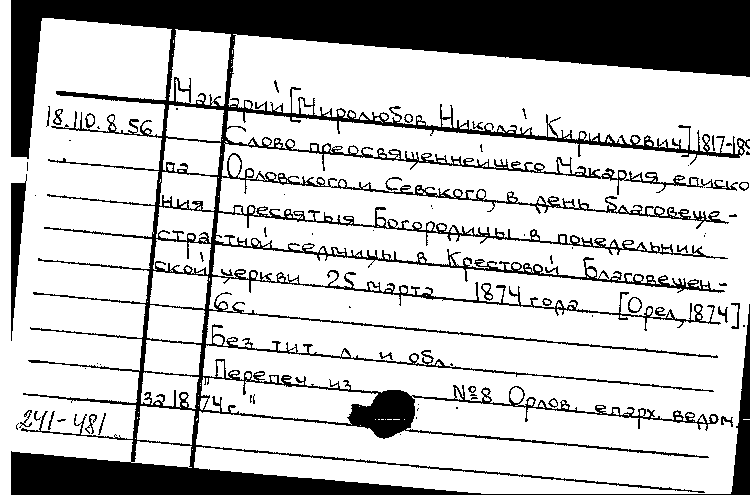 Макарий [Миролюбов, Николай Кириллович], 1817-189
18.110.8.56.
Слово преосвященнейшего Макария, еписко
па Орловского и Севского, в день Благовеще-
ния пресвятыя Богородицы в понедельник
страстной седмицы в Крестовой Благовещен-
ской церкви 25 марта 1874 года. [Орел, 1874].
6с.
Без тит. л. и обл.
"Перепеч. из №8 Орлов. епарх. ведом.
за 1874 г."
241-481